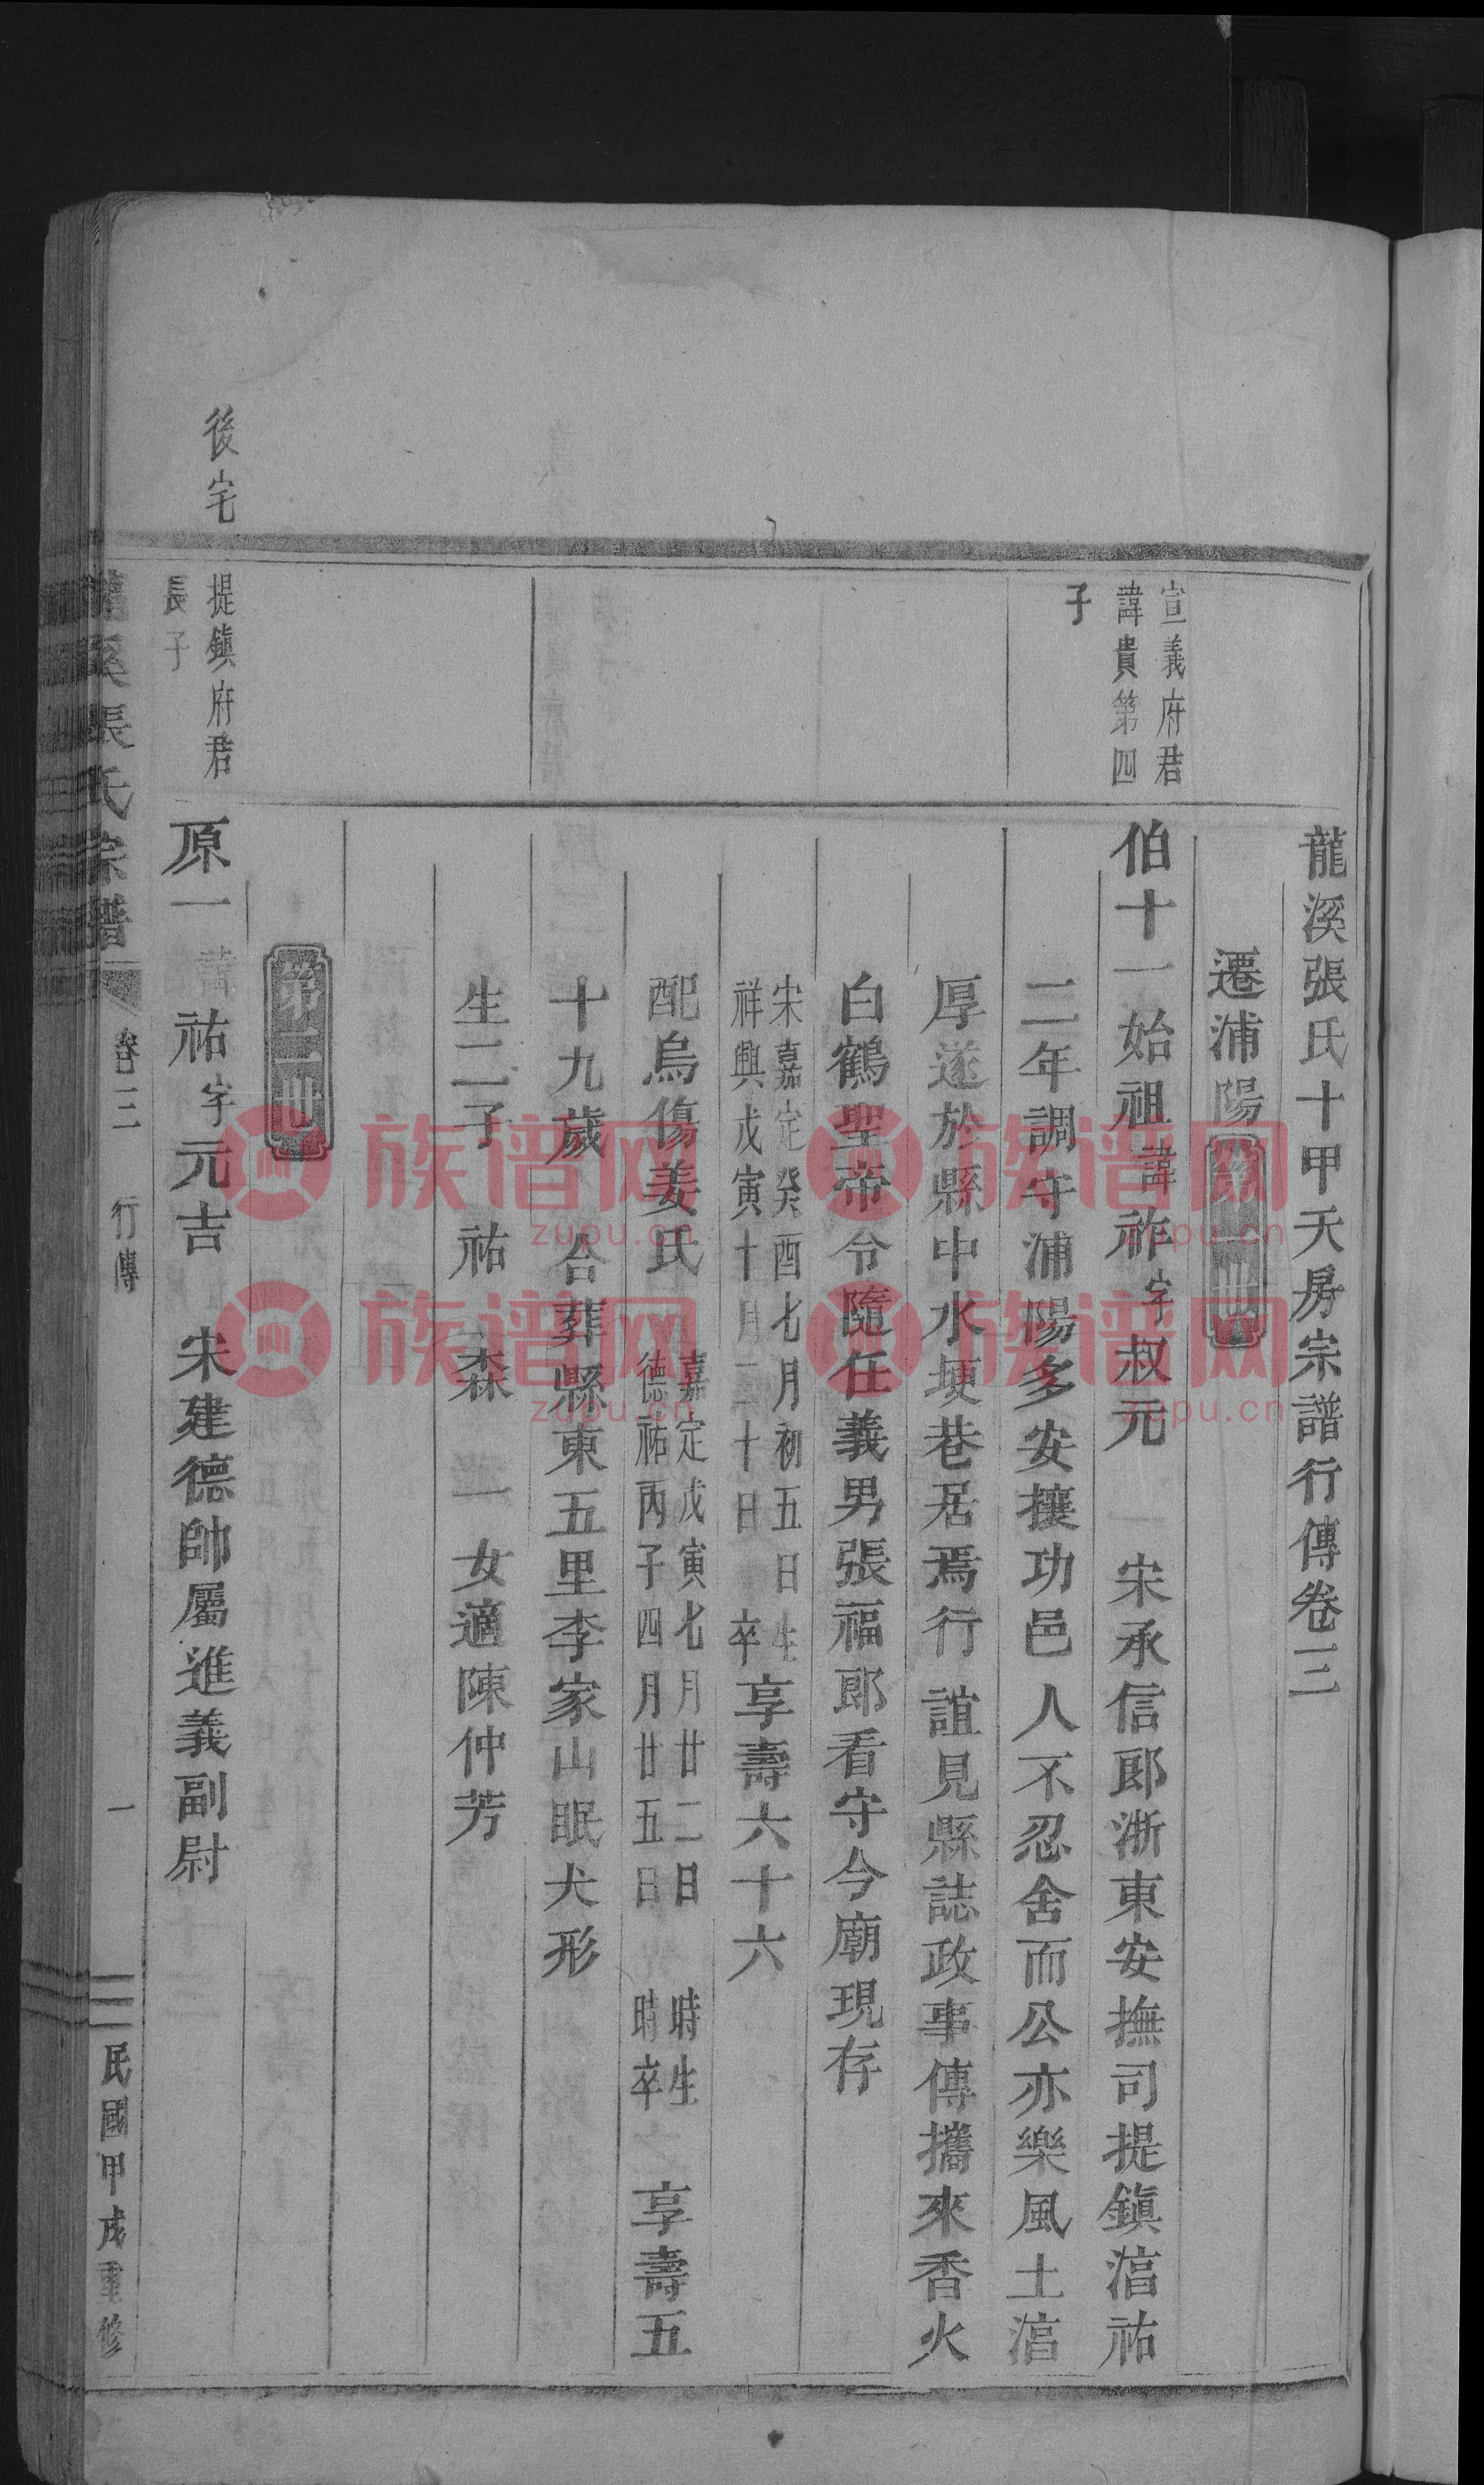 龍溪張氏十甲天房宗譜行傳卷三
遷浦陽 第一世
宣義府君
諱貴第四
子
伯十一始祖諱祚字叔元 宋承信郎浙東安撫司提鎮湻祐
二年調守浦陽多安攘功邑人不忍舍而公亦樂風土湻
厚遂於縣中水埂巷居焉行誼見縣誌政事傳攜來香火
白鶴聖帝令隨任義男張福郎看守今廟現存
宋嘉定癸酉七月初五日生
祥興戊寅十月二十日 卒
享壽六十六
配烏傷姜氏
嘉定戊寅七月廿二日 時生
德祐丙子四月廿五日 時卒
享壽五
十九歲 合葬縣東五里李家山眠犬形
生二子 祐 森 一女適陳仲芳
第二世
後宅
提鎮府君
長子
原一諱祐字元吉 宋建德帥屬進義副尉
龍溪張氏宗譜 卷三 行傳 一 民國甲戌重修
族谱网
zupu.cn
族谱网
zupu.cn
族谱网
zupu.cn
族谱网
zupu.cn